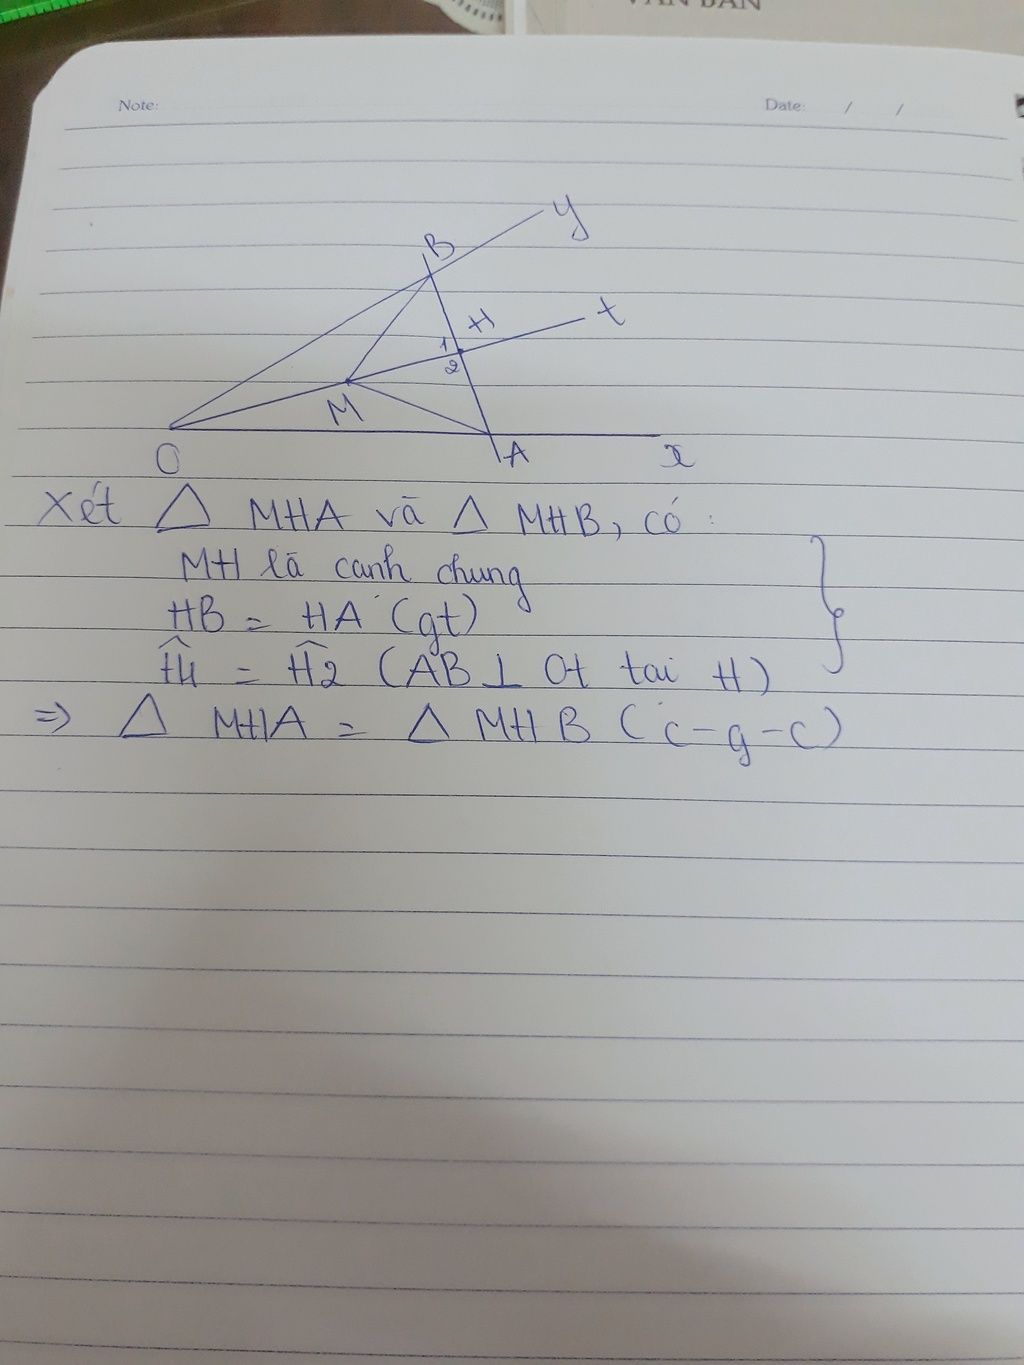 VĂN BẢN
Note:
Date: / /
y
B
H
t
1
2
M
O
A
x
Xét △ MHA và △ MHB, có :
MH là cạnh chung
HB = HA (gt)
Ĥ1 = Ĥ2 (AB ⊥ Ot tại H)
=> △ MHA = △ MHB (c-g-c)